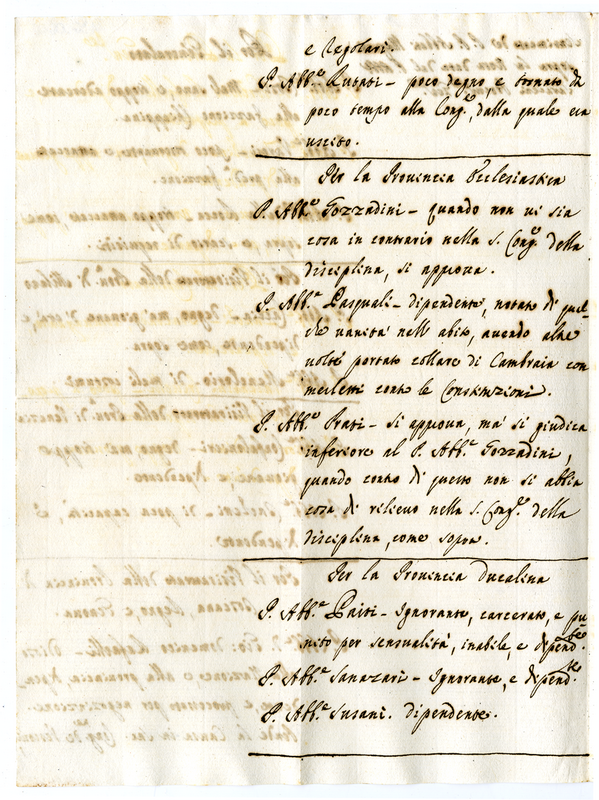 e Regolari.
P. Abb.e Rusati - poco degno, e tornato da
poco tempo alla Cong.e, dalla quale era
uscito.
Per la Provincia Ecclesiastica
P. Abb.e Gozzadini - quando non vi sia
cosa in contrario nella S. Cong.e della
disciplina, si approva.
P. Abb.e Pasquali - dipendente, notato di qual-
che vanità nell' abito, avendo altre
volte portato collare di Cambraia con
merletti conto le Constituzioni.
P. Abb.e Prati - si approva, ma si giudica
inferiore al P. Abb.e Gozzadini,
quando conto di questo non si abbia
cosa di rilievo nella S. Cong.e della
disciplina, come sopra.
Per la Provincia Ducalina
P. Abb.e Paiti - Ignorante, carcerato, e pu-
nito per sensualità, inabile, e dipend.te
P. Abb.e Sanazari - Ignorante, e dipend.te
P. Abb.e Susani. dipendente.